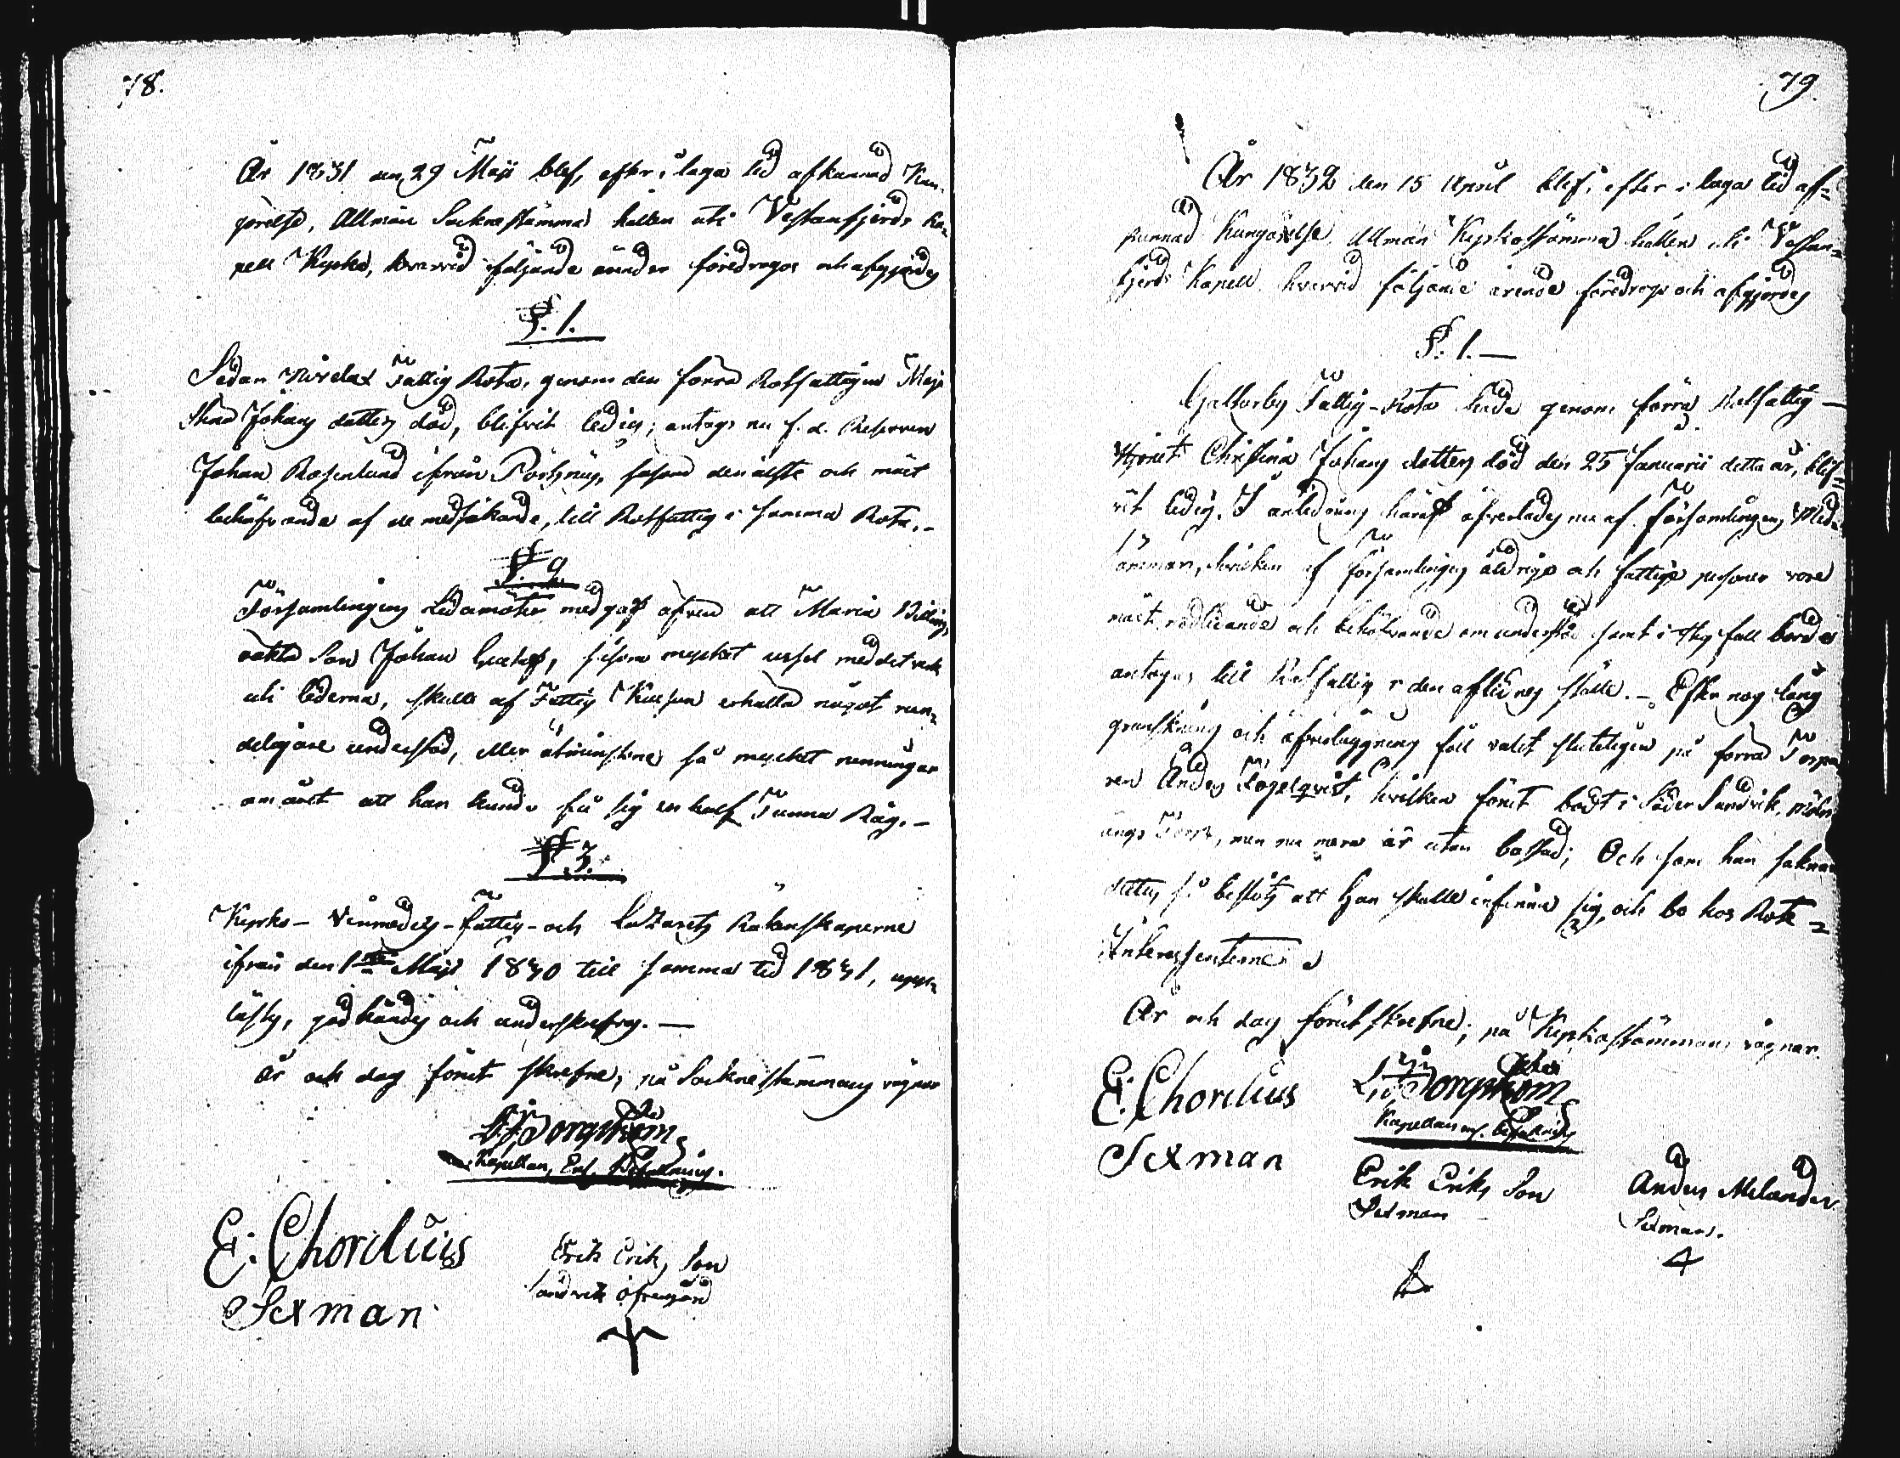 78.
År 1831 den 29 Maji blef, efter i laga tid afkunnad Kun-
görelse, Allmän Socknestämma hållen uti Vestanfjerds Ka-
pell Kyrka, hvarvid följande ärender föredrogos och afgjordes
§. 1.
Sedan Nivelax Fattig Rota, genom den förra Rotfattigen Maja
Stina Johans dotters död, blifvit ledig; antogs nu f. d. Reserven
Johan Rosenlund ifrån Pörtsnäs, såsom den älste och mäst
behöfvande af de medsökande, till Rotfattig i samma Rota. -
§. 2.
Församlingens Ledamöter medgaf äfven att Maria Billings
oäkta Son Johan Gustaf, såsom mycket ussel med det värk
uti lederna, skulle af Fattig Kassan erhålla något run-
deligare understöd, eller åtminstone så mycket penningar
om året att han kunde få sig en half Tunna Råg. -
§. 3.
Kyrko- Vinmedels- Fattig- och Lazarets Räkenskaperne
ifrån den 1sta Maji 1830 till samma tid 1831, upp-
lästes, godkändes och underskrefvos. —
År och dag förut skrefne; på Sockne stämmans vägnar
L. J. Borgström
Kapellan, Enl. Befallning.
E: Chorelius
Sexman
Erik Eriks Son
Sandvik öfvergård
79.
År 1832 den 15 April blef, efter i laga tid af-
kunnad Kungörelse Allmän Kyrkostämma hållen uti Vestan-
fjerds Kapell hvarvid följande ärende föredrogs och afgjordes
§. 1. —
Galtarby Fattig-Rota hade genom förra Rotfattig —
Hjonet Christina Johans dotters död den 25 Januarii detta år, blif-
vit ledig. I anledning häraf öfverlades nu af Församlingens Med-
lämmar, hvilken af Församlingens åldriga och fattiga personer vore
mäst nödlidande och behöfvande om understöd samt i thy fall borde
antagas till Rotfattig i den aflidnes ställe. - Efter nog lång
granskning och öfverläggning föll valet sluteligen på förra Torpa-
ren Anders Fogelqvist, hvilken förut bodt i Söder Sandvik,
ängs Torp, men nu mera är utan bostad; Och som han saknar
dettas så beslöts att Han skulle infinna sig och bo hos Rote-
Interessenterne.
År och dag förut skrefne; på Kyrkostämmans vägnar.
E: Chorelius
Sexman
L. J. Borgström
Kapellan enl. befallning
Erik Eriks Son
Sexman
Anders Melander
Sexman.